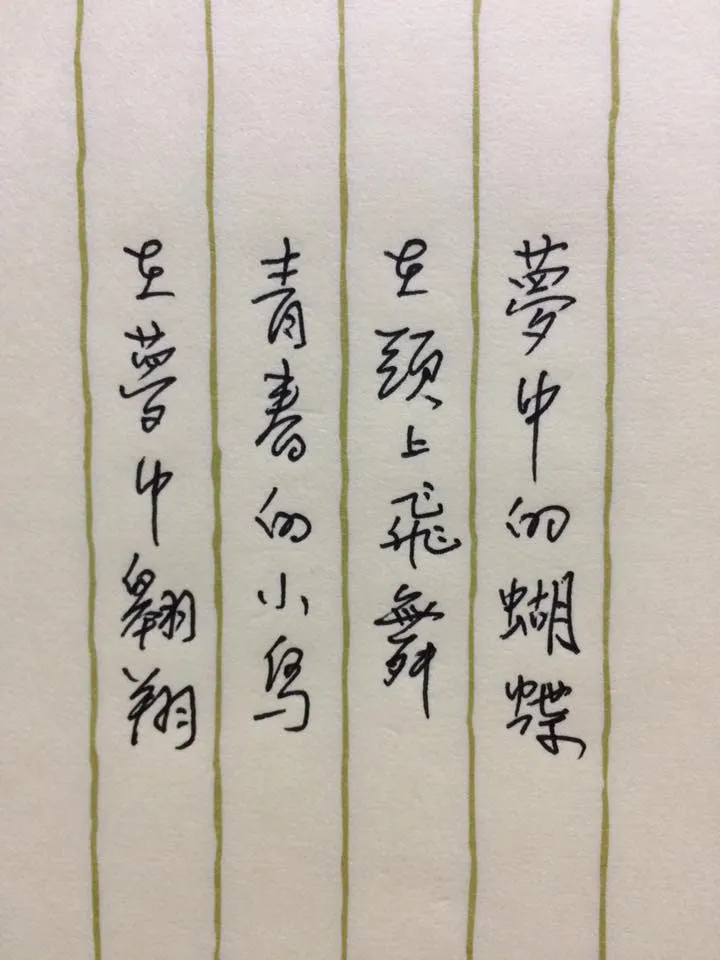 夢中的蝴蝶
在頭上飛舞
青春的小鳥
在夢中翱翔